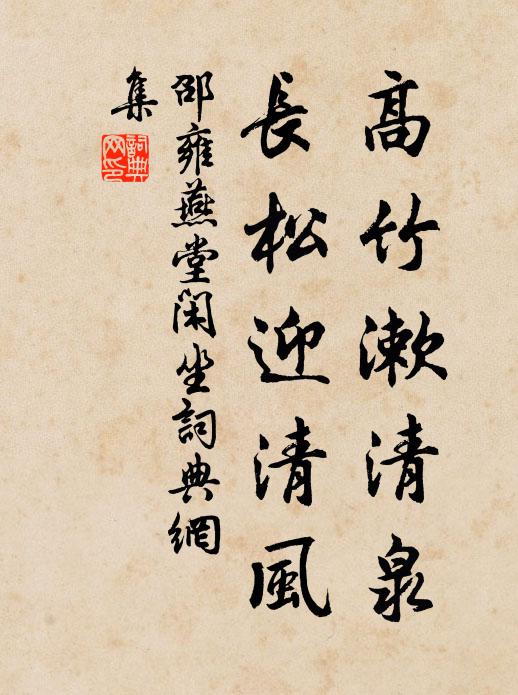 高竹漱清泉
長松迎清風
邵雍燕堂閑坐詞典網
集
詞典
网印